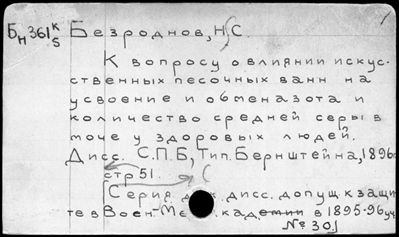 Бн361 к/5 Безроднов, Н.С.
К вопросу о влиянии искус-
ственных песочных ванн на
усвоение и обмен азота и
количество средней серы в
моче у здоровых людей.
Дисс. С.П.Б, Тип. Бернштейна, 1896
стр 51.
Серия дисс. допущ. к защи
те в Воен-Ме кадемии в 1895-96 уч.
№ 30